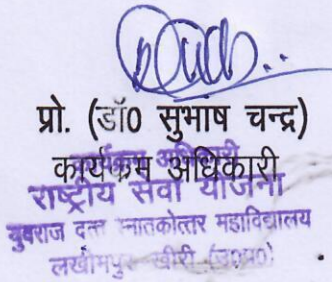 प्रो. (डॉ0 सुभाष चन्द्र)
कार्यकम अधिकारी
कार्यक्रम अधिकारी
राष्ट्रीय सेवा योजना
युवराज दत्त स्नातकोत्तर महाविद्यालय
लखीमपुर खीरी (उ०प्र०)